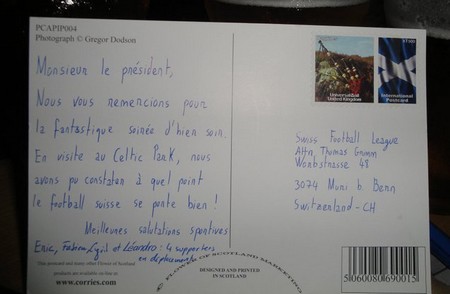 PCAPIP004
Photograph © Gregor Dodson
Monsieur le président,
Nous vous remercions pour
la fantastique soirée d'hier soir.
En visite au Celtic Park, nous
avons pu constater à quel point
le football suisse se porte bien !
Meilleures salutations sportives
Eric, Fabien, Cyril et Léandro : 4 supporters
en déplacement
This postcard and many other Flower of Scotland
products are available on line at
www.corries.com
© FLOWER OF SCOTLAND MARKETING
DESIGNED AND PRINTED
IN SCOTLAND
Universal Mail
United Kingdom
International
Postcard
Swiss Football League
Attn. Thomas Grimm
Worbstrasse 48
3074 Muri b. Bern
Switzerland - CH
5060080690015